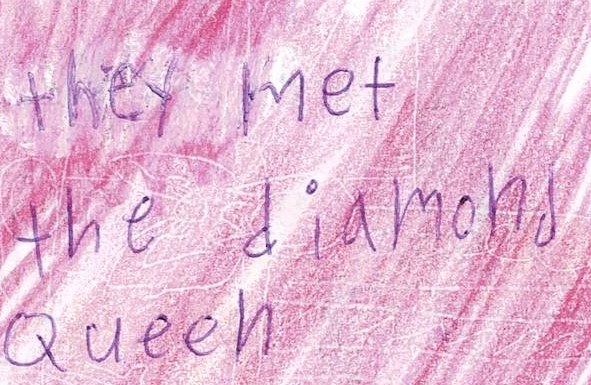 they met
the diamond
Queen